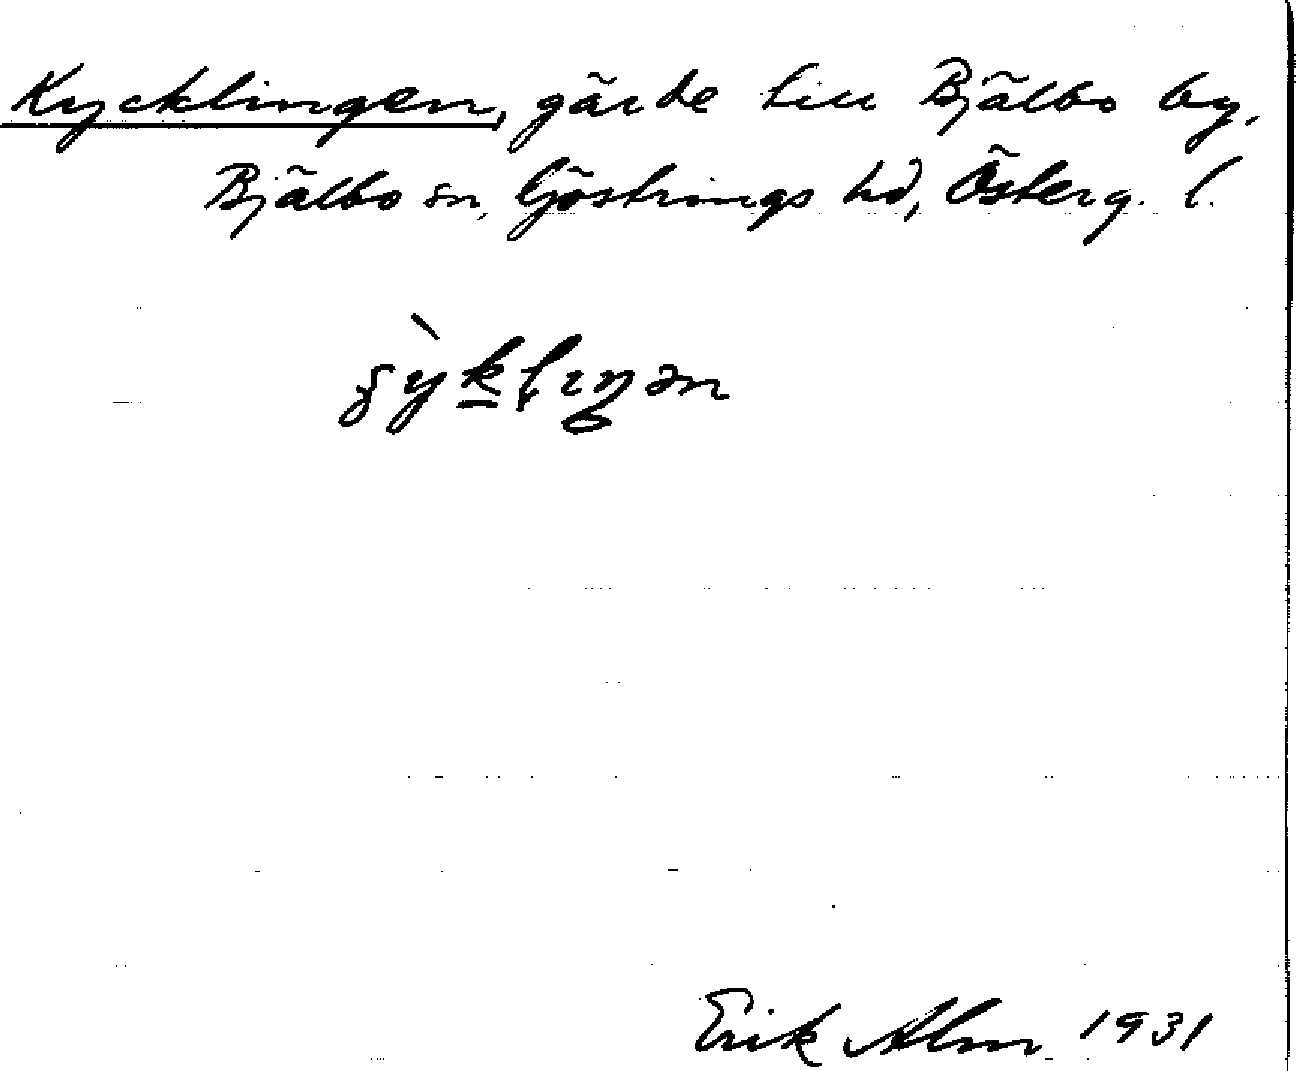 Kycklingen, gärde till Bjälbo by,
Bjälbo sn, Göstrings hd, Österg. l.
Erik Alm 1931